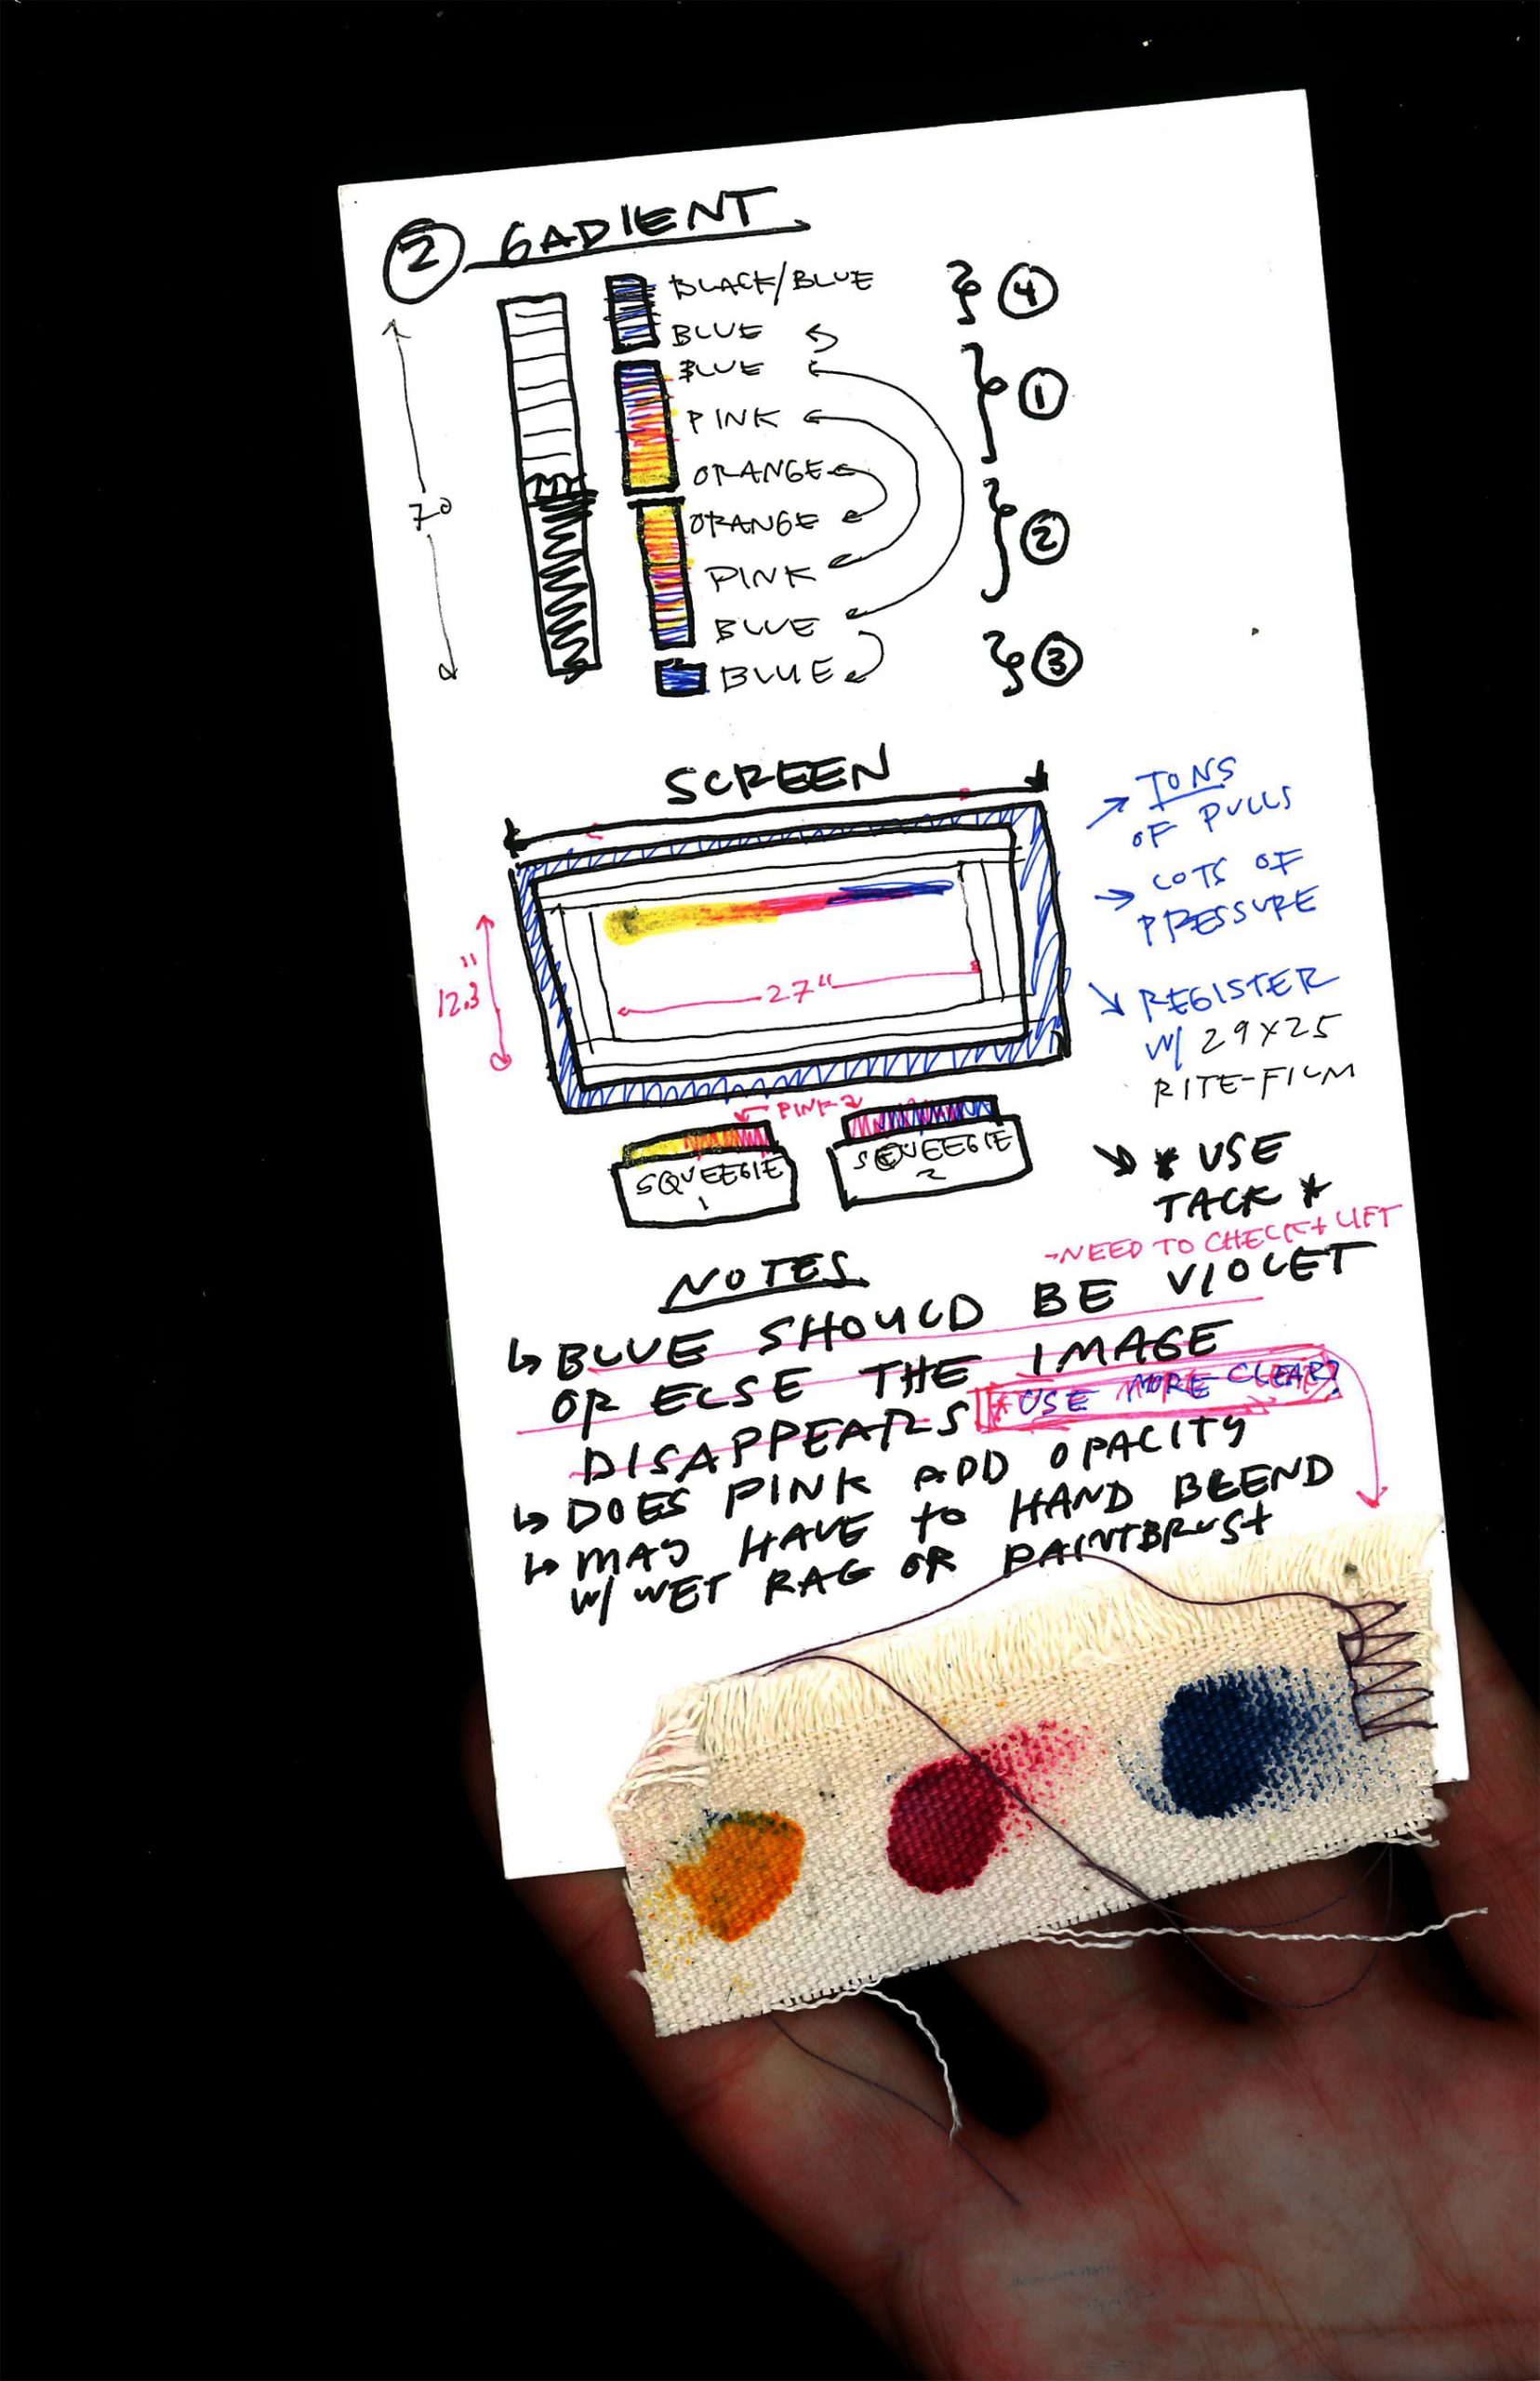 ② GADIENT
BLACK/BLUE
④
BLUE
BLUE
①
PINK
ORANGE
7°
ORANGE
②
PINK
BLUE
BLUE
③
SCREEN
→ TONS
OF PULLS
→ LOTS OF
PRESSURE
12.3"
27"
→ REGISTER
W/ 29X25
RITE-FILM
PINK
SQUEEGIE
1
SQUEEGIE
2
→ * USE
TACK *
-NEED TO CHECK + LIFT
NOTES
↳ BLUE SHOULD BE VIOLET
OR ELSE THE IMAGE
DISAPPEARS
* USE MORE CLEAR?
↳ DOES PINK ADD OPACITY
↳ MAY HAVE to HAND BLEND
W/ WET RAG OR PAINTBRUSH